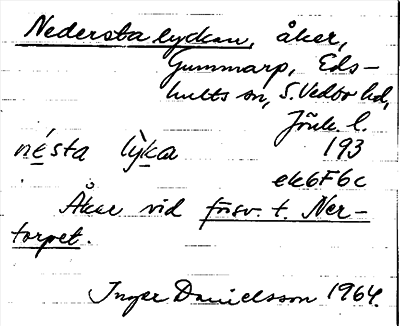 Nedersta lyckan, åker,
Gummarp, Eds-
hults sn, S. Vedbo hd,
Jönk. l.
nésta lỳka 193
ek6F6c
Åker vid försv. t. Ner-
torpet.
Inger Danielsson 1964.